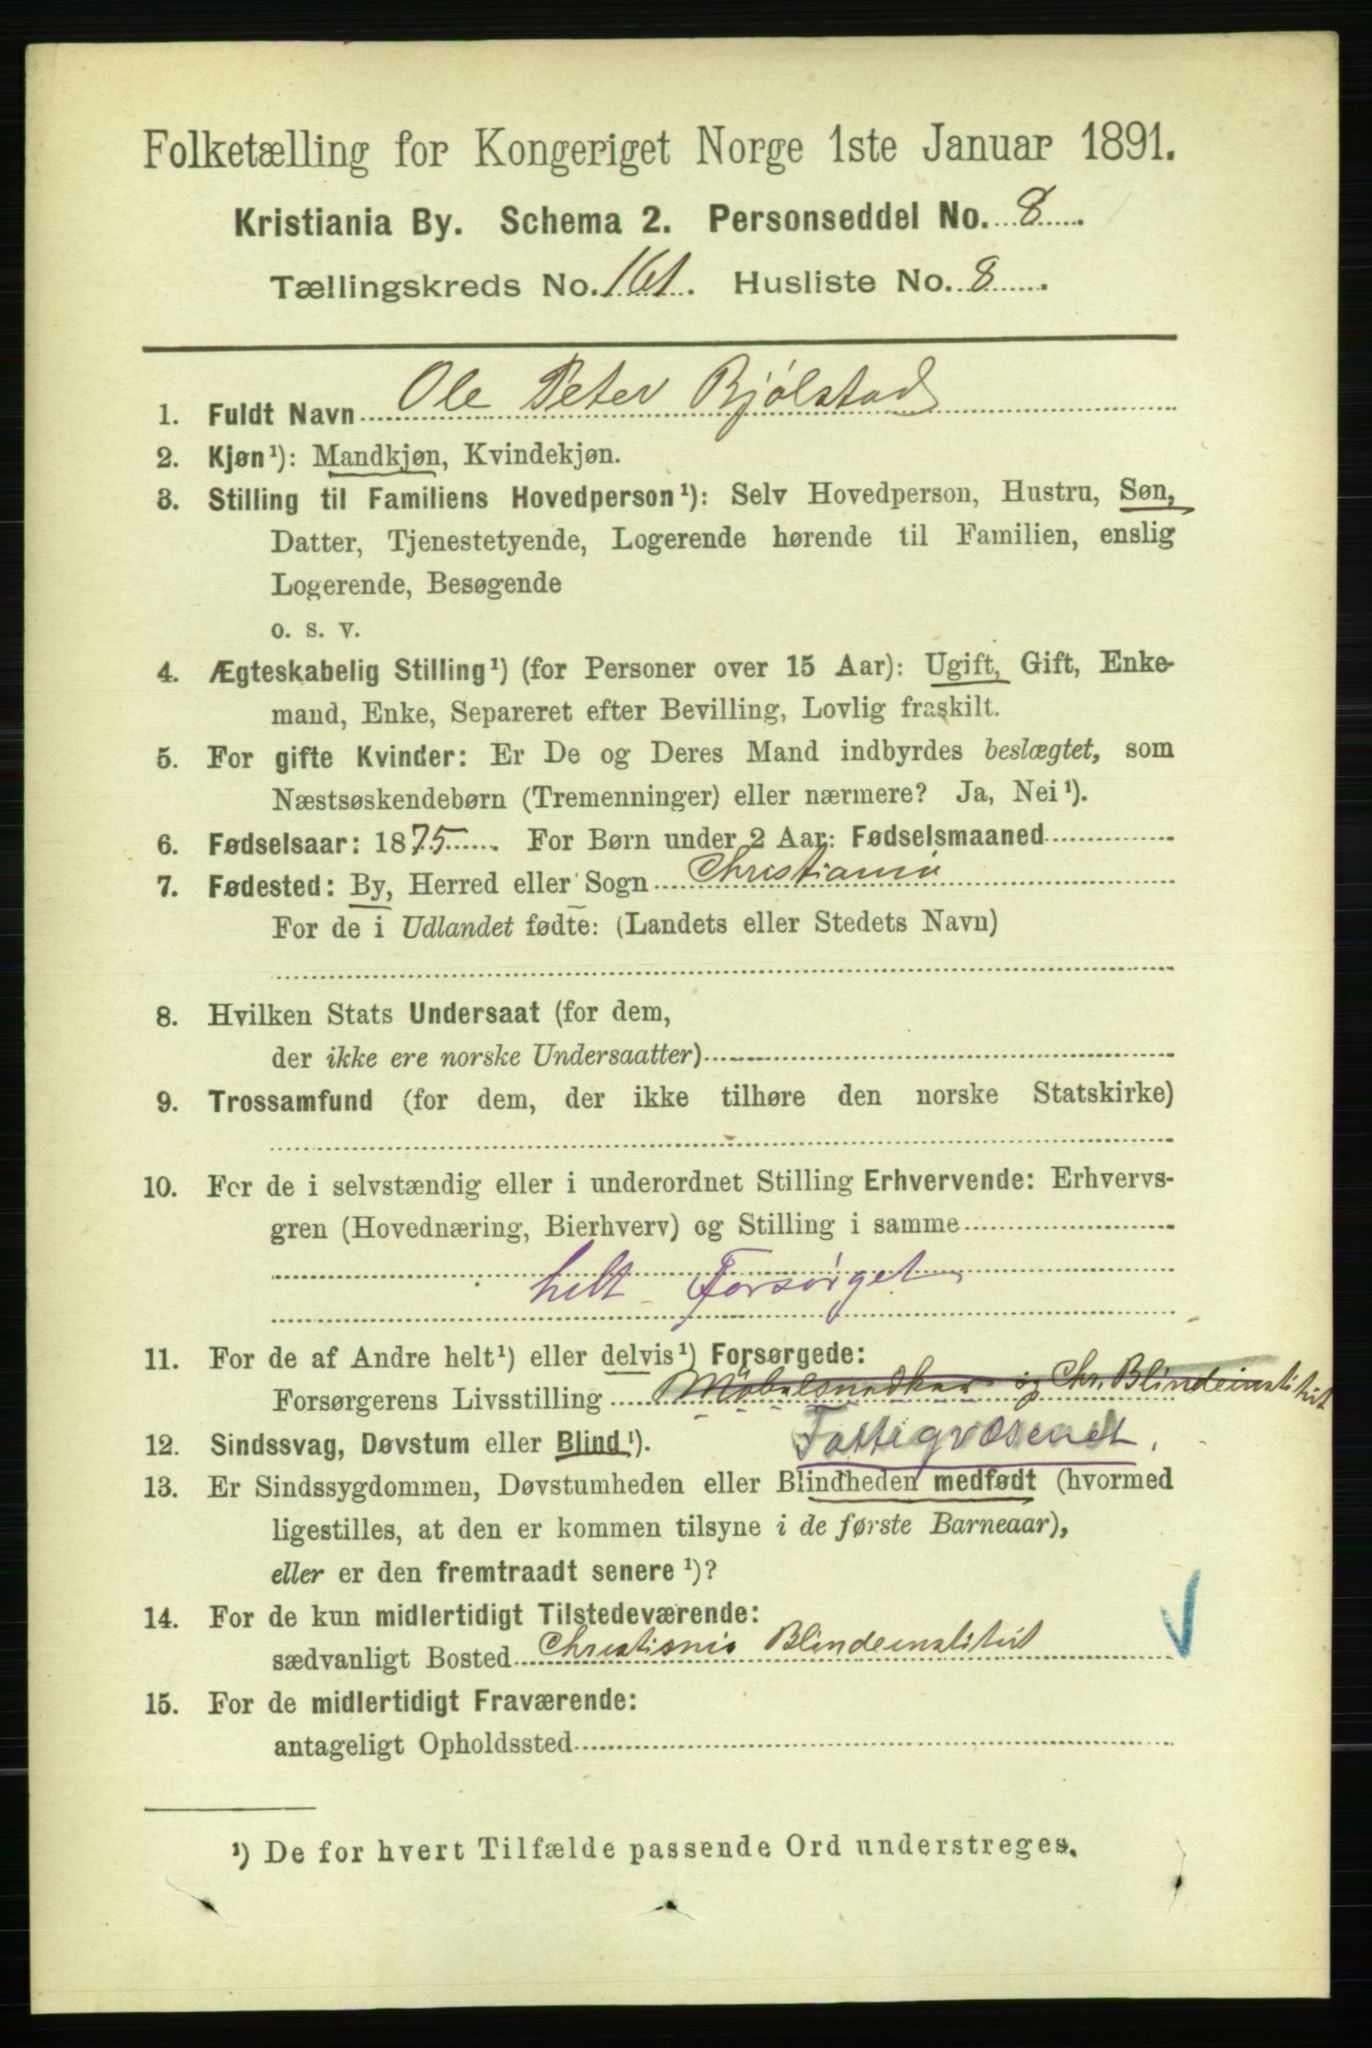 Folketælling for Kongeriget Norge 1ste Januar 1891.
Kristiania By. Schema 2. Personseddel No. 8
Tællingskreds No. 161. Husliste No. 8
1. Fuldt Navn Ole Peter Bjølstad
2. Kjøn¹): Mandkjøn, Kvindekjøn.
3. Stilling til Familiens Hovedperson¹): Selv Hovedperson, Hustru, Søn,
Datter, Tjenestetyende, Logerende hørende til Familien, enslig
Logerende, Besøgende
o. s. v.
4. Ægteskabelig Stilling¹) (for Personer over 15 Aar): Ugift, Gift, Enke-
mand, Enke, Separeret efter Bevilling, Lovlig fraskilt.
5. For gifte Kvinder: Er De og Deres Mand indbyrdes beslægtet, som
Næstsøskendebørn (Tremenninger) eller nærmere? Ja, Nei¹).
6. Fødselsaar: 1875. For Børn under 2 Aar: Fødselsmaaned
7. Fødested: By, Herred eller Sogn Christiania
For de i Udlandet fødte: (Landets eller Stedets Navn)
8. Hvilken Stats Undersaat (for dem,
der ikke ere norske Undersaatter)
9. Trossamfund (for dem, der ikke tilhøre den norske Statskirke)
10. For de i selvstændig eller i underordnet Stilling Erhvervende: Erhvervs-
gren (Hovednæring, Bierhverv) og Stilling i samme
helt Forsørget
11. For de af Andre helt¹) eller delvis¹) Forsørgede:
Forsørgerens Livsstilling Møbelsnedker og Chr. Blindeinstitut
12. Sindssvag, Døvstum eller Blind¹). Fattigvæsenet.
13. Er Sindssygdommen, Døvstumheden eller Blindheden medfødt (hvormed
ligestilles, at den er kommen tilsyne i de første Barneaar),
eller er den fremtraadt senere¹)?
14. For de kun midlertidigt Tilstedeværende:
sædvanligt Bosted Christiania Blindeinstitut
15. For de midlertidigt Fraværende:
antageligt Opholdssted
¹) De for hvert Tilfælde passende Ord understreges.